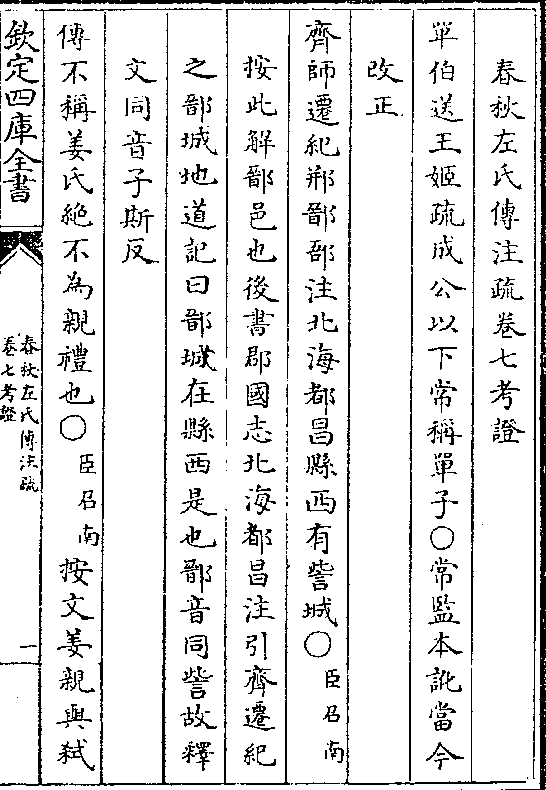 春秋左氏傳注疏卷七考證
單伯送王姬疏成公以下常稱單子〇常監本訛當今
改正
齊師遷紀郱鄑郚注北海都昌縣西有訾城〇臣召南
按此解鄑邑也後書郡國志北海都昌注引齊遷紀
之鄑城地道記曰鄑城在縣西是也鄑音同訾故釋
文同音子斯反
傳不稱姜氏絶不為親禮也〇臣召南按文姜親與弑
欽定四庫全書
春秋左氏傳注疏
卷七考證
一